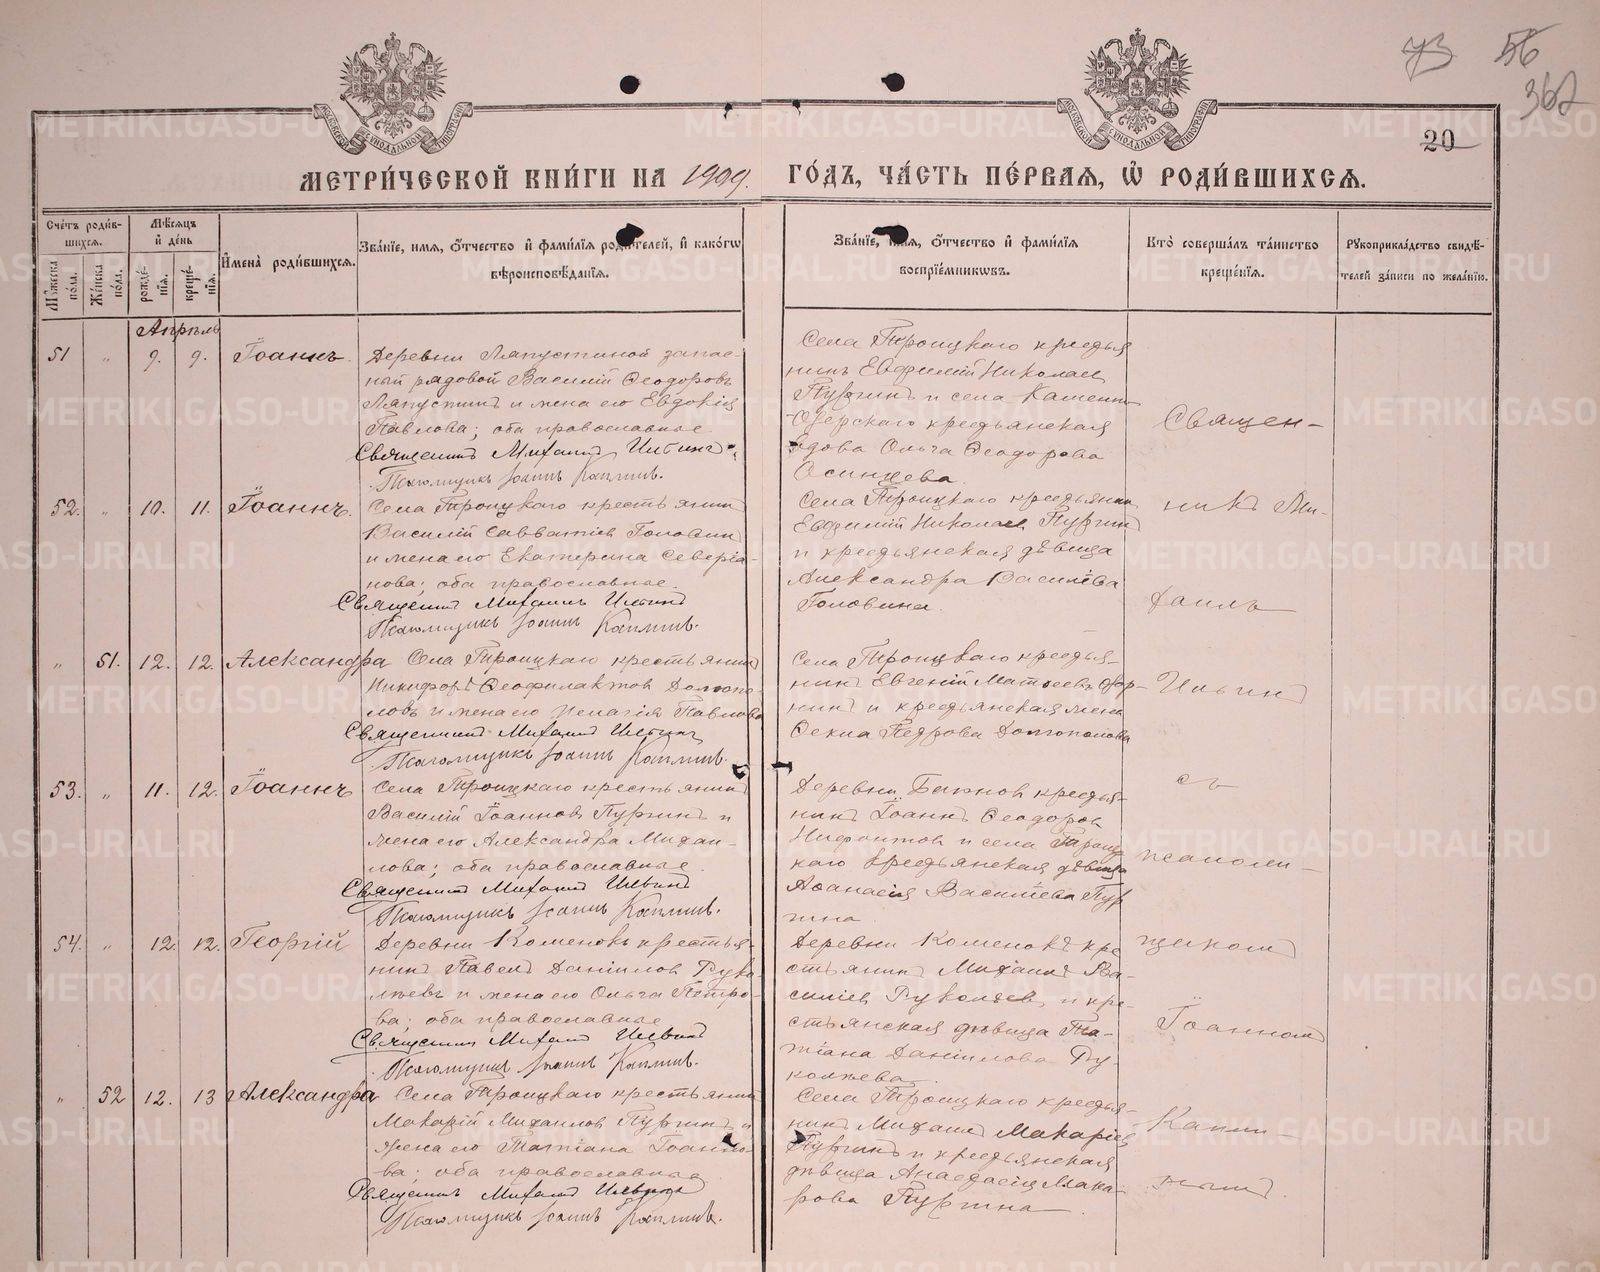 73 56
362
20
МЕТРИ́ЧЕСКОЙ КНИ́ГИ НА 1909. ГО́ДЪ, ЧА́СТЬ ПЕ́РВАЯ, Ѡ҆ РОДИ́ВШИХСЯ.
Сче́тъ роди́в-
шихся.
Мꙋ́жеска по́ла.
Же́нска по́ла.
Мѣ́сяцъ
и҆ де́нь
рожде́-
нїя.
креще́-
нїя.
И҆мена̀ роди́вшихся.
Зва́нїе, имя, Ѻ҆́тчество и҆ фами́лїя роди́телей, и҆ како́гѡ
вѣроисповѣ́данїя.
Зва́нїе, имя, Ѻ҆́тчество и҆ фами́лїя
воспрїе́мникѡвъ.
Кто̀ соверша́лъ та́инство
креще́нїя.
Рꙋкоприкла́дство свидѣ́-
телей за́писи по жела́нїю.
Апрѣль
51 " 9. 9. Іоаннъ
Деревни Лапустиной запас-
ный рядовой Василій Ѳеодоровъ
Лапустинъ и жена его Евдокія
Павлова; оба православные.
Священникъ Михаилъ Ильинъ
Псаломщикъ Іоаннъ Каплинъ.
Села Троицкаго крестья
нинъ Евфимій Николаев
Пургинъ и села Каменно
Озерскаго крестьянская
вдова Ольга Ѳеодорова
Осинцева.
52. " 10. 11. Іоаннъ
Села Троицкаго крестьянинъ
Василій Савватіев Головин
и жена его Екатерина Северіа-
нова; оба православные.
Священникъ Михаилъ Ильинъ
Псаломщикъ Іоаннъ Каплинъ.
Села Троицкаго крестьянин
Евфимій Николаев Пургин
и крестьянская дѣвица
Александра Васильева
Головина.
" 51. 12. 12. Александра
Села Троицкаго крестьянин
Никифоръ Ѳеофилактов Долгопо-
ловъ и жена его Пелагія Павлова
Священникъ Михаилъ Ильинъ
Псаломщикъ Іоаннъ Каплинъ.
Села Троицкаго крестья-
нинъ Евгеній Матѳеевъ
нинъ и крестьянская жена
Ѳекла Петрова Долгополова
53. " 11. 12. Іоаннъ
Села Троицкаго крестьянин
Василій Іоаннов Пургинъ и
жена его Александра Михаи-
лова; оба православные.
Священникъ Михаилъ Ильинъ
Псаломщикъ Іоаннъ Каплинъ.
Деревни крестья-
нинъ Іоаннъ Ѳеодоров
Нифонтов и села Троиц
каго крестьянская дѣвица
Аѳанасія Васильева Пур
гина
54. " 12. 12. Георгій
Деревни крестья-
нинъ Павелъ Даніилов Руко-
лѣевъ и жена его Ольга Петро-
ва; оба православные
Священникъ Михаилъ Ильинъ
Псаломщикъ Іоаннъ Каплинъ.
Деревни кре
стьянинъ Михаилъ Ва-
силіев и кре-
стьянская дѣвица Та-
тіана Даніилова Ру-
колѣева.
" 52 12. 13 Александра
Села Троицкаго крестьянин
Макарій Михаилов Пургинъ и
жена его Татіана Іоанно-
ва; оба православные
Священникъ Михаилъ Ильинъ
Псаломщикъ Іоаннъ Каплинъ.
Села Троицкаго крестья-
нинъ Михаилъ Макаріев
Пургинъ и крестьянская
дѣвица Анастасія Мака-
рова Пургина
Священ-
никъ Ми-
хаилъ
Ильинъ
съ
псалом-
щикомъ
Іоанномъ
Капли-
нымъ.
METRIKI.GASO-URAL.RU